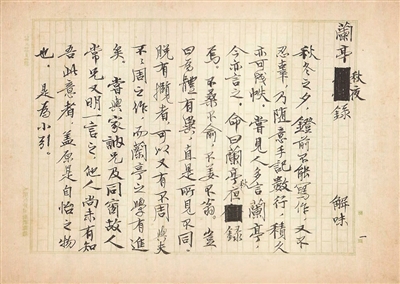 蘭亭秋夜錄
解味
一
秋冬之夕，鐙前不能寫作，又不
忍辜，乃隨意手記數行，積久
亦可成帙。嘗見人多言蘭亭，
今亦言之。命曰蘭亭秋夜錄
焉。不桑不俞，不姜不翁。豈
曰為體有異，直是所見不同。
脫有攬者，可以又有不周
不周之作，而蘭亭之學有進
矣。嘗與家訥兄及同窗故人
常兄又明一言之，他人尚未有知
吾此意者，盖原是自怡之物
也。是為小引。